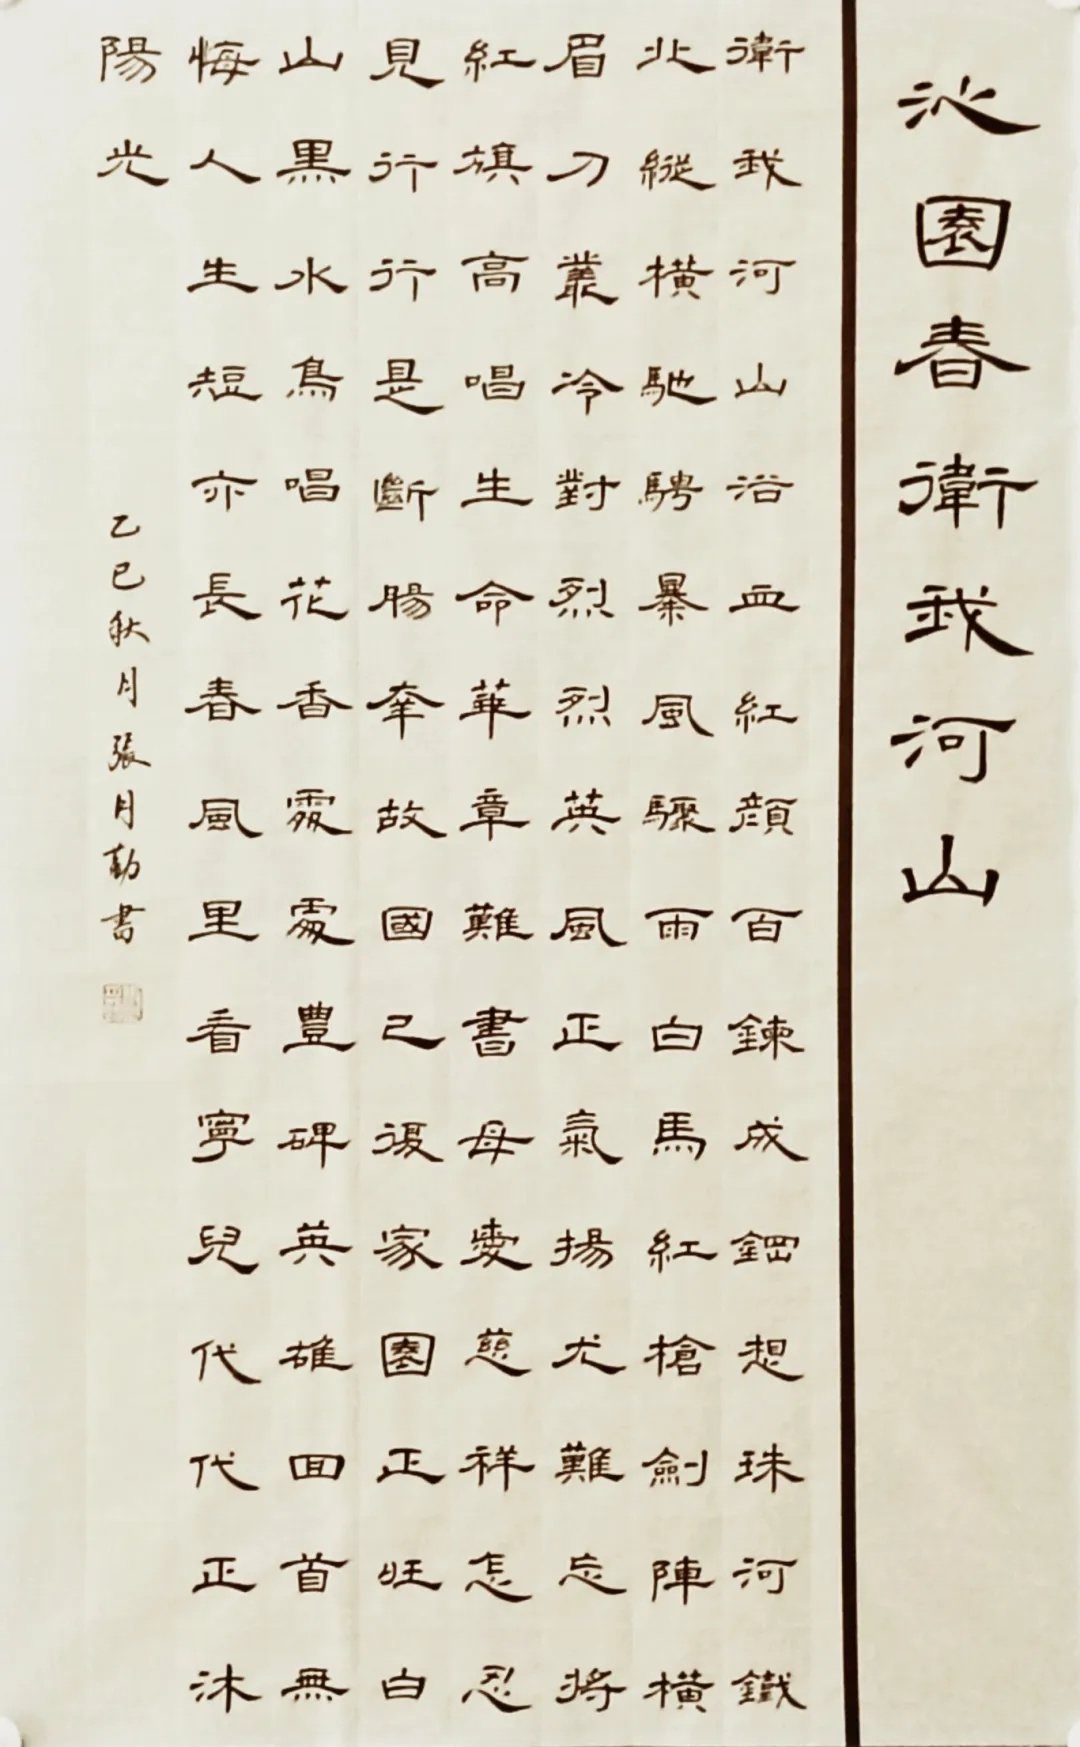 沁園春衛我河山
衛我河山浴血紅顔百鍊成鋼想珠河鐵
北縱橫馳騁暴風驟雨白馬紅槍劍陣橫
眉刀叢冷對烈烈英風正氣揚尤難忘將
紅旗高唱生命華章難書母愛慈祥怎忍
見行行是斷腸奉故國已復家園正旺白
山黑水鳥唱花香霰處豊碑英雄回首無
悔人生短亦長春風里看寧兒代代正沐
陽光
乙巳秋月張月勤書